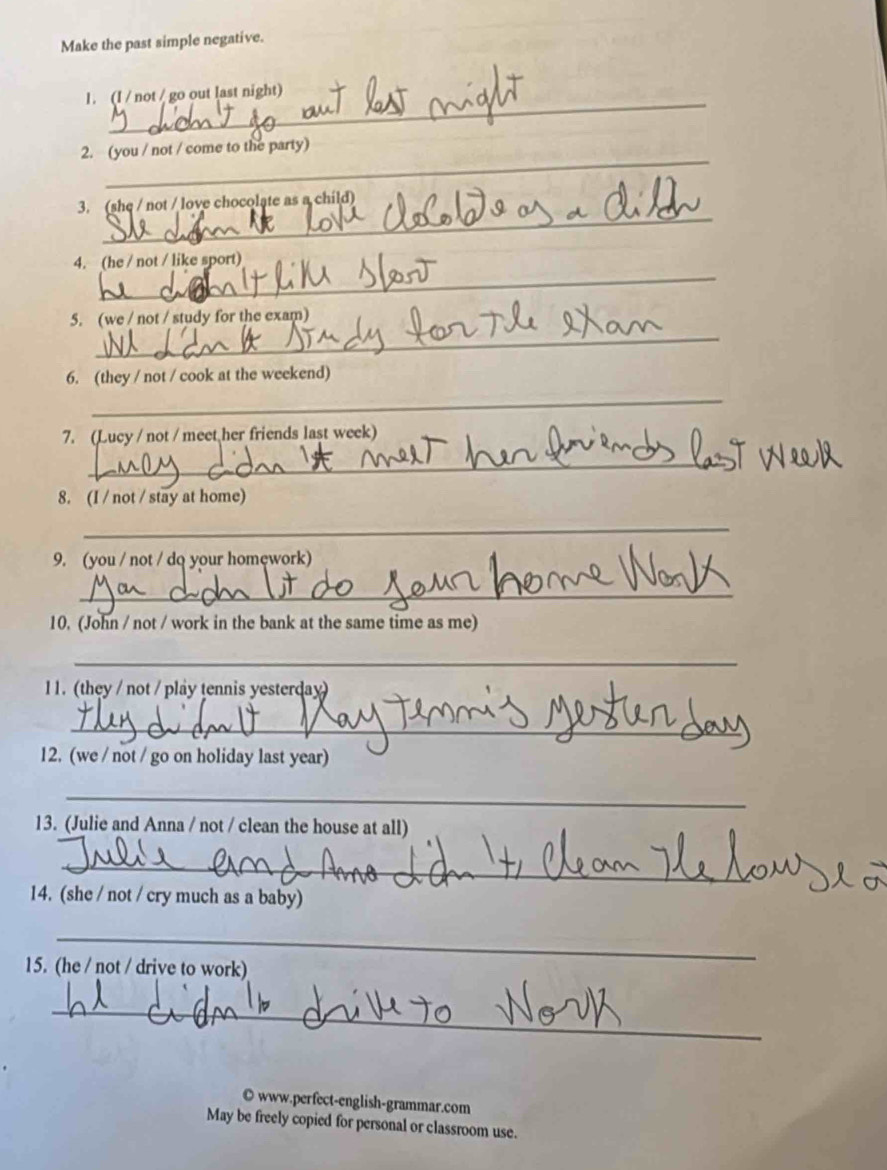 Make the past simple negative.
1. (I / not / go out last night)
I didn't go out last night
2. (you / not / come to the party)
3. (she / not / love chocolate as a child)
She didn't love chocolate as a child
4. (he / not / like sport)
he didn't like sport
5. (we / not / study for the exam)
We didn't study for the exam
6. (they / not / cook at the weekend)
7. (Lucy / not / meet her friends last week)
Lucy didn't meet her friends last week
8. (I / not / stay at home)
9. (you / not / do your homework)
you didn't do your home work
10. (John / not / work in the bank at the same time as me)
11. (they / not / play tennis yesterday)
they didn't play tennis yesterday
12. (we / not / go on holiday last year)
13. (Julie and Anna / not / clean the house at all)
Julie and Anna didn't clean the house a
14. (she / not / cry much as a baby)
15. (he / not / drive to work)
he didn't drive to work
© www.perfect-english-grammar.com
May be freely copied for personal or classroom use.